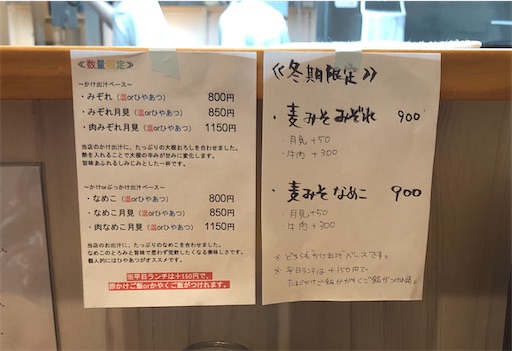 ≪数量限定≫
～かけ出汁ベース～
・みぞれ（温orひやあつ） 800円
・みぞれ月見（温orひやあつ） 850円
・肉みぞれ月見（温orひやあつ） 1150円
当店のかけ出汁に、たっぷりの大根おろしを合わせました。
熱を入れることで大根の辛みが甘みに変化します。
旨味あふれるしみじみとした一杯です。
～かけorぶっかけ出汁ベース～
・なめこ（温orひやあつ） 800円
・なめこ月見（温orひやあつ） 850円
・肉なめこ月見（温orひやあつ） 1150円
当店のお出汁に、たっぷりのなめこを合わせました。
なめこのとろみと旨味で思わず完飲したくなる美味しさです。
個人的にはひやあつがオススメです。
※平日ランチは＋150円で、
卵かけご飯orかやくご飯がつけれます。
≪冬期限定≫
・麦みそみぞれ 900
・月見+50
・牛肉+300
・麦みそなめこ 900
・月見+50
・牛肉+300
※どちらも"かけ出汁"ベースです。
※平日ランチは+150円で
たまごかけご飯かかやくご飯がつけれる。